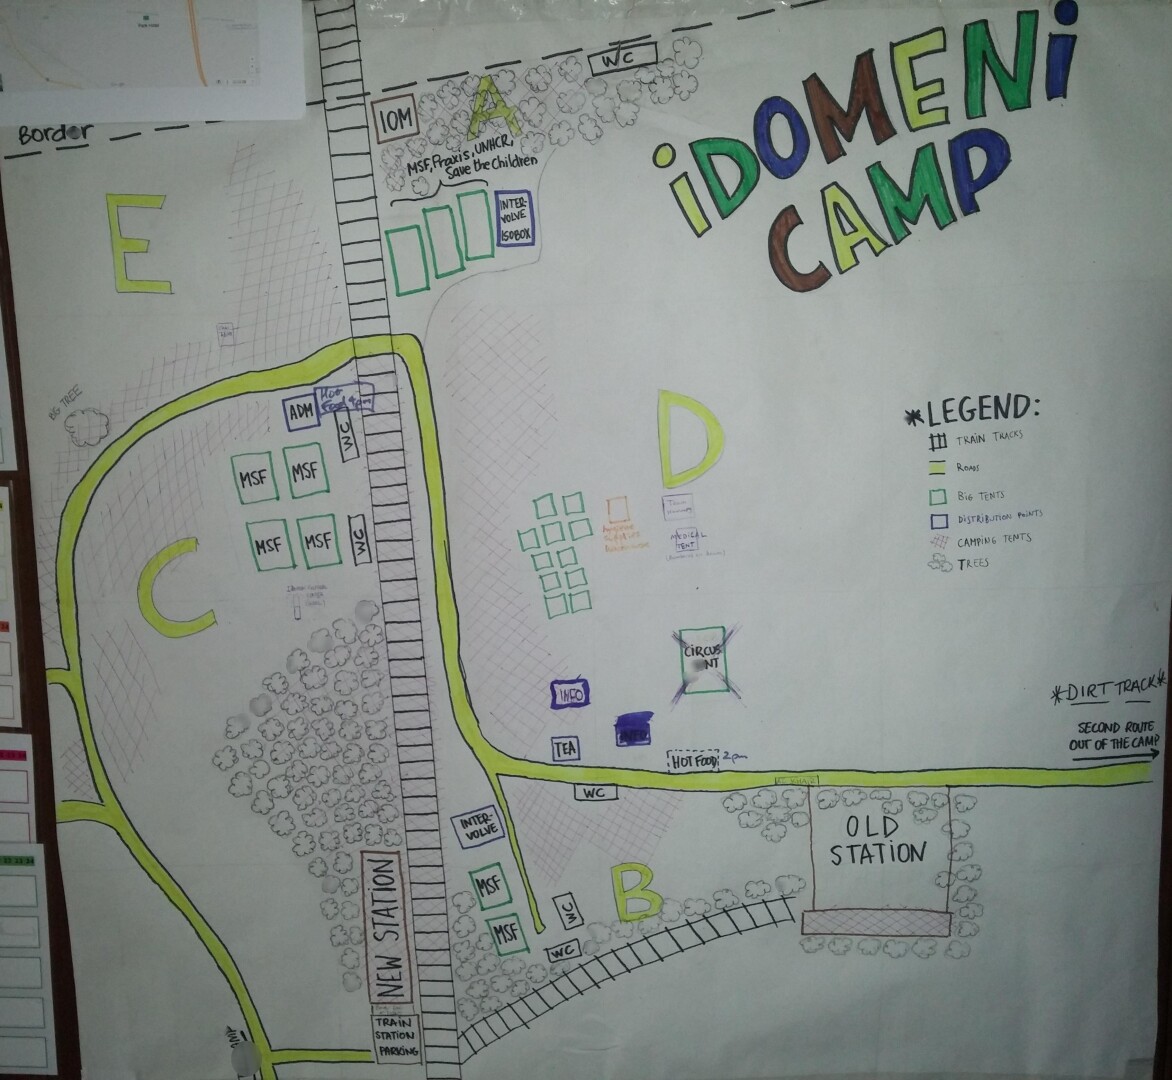 Border
WC
iDOMENi
CAMP
A
IOM
MSF, Praxis, UNHCR,
Save the Children
INTER-
VOLVE
ISOBOX
E
BIG TREE
ADM
Hot
Food 4pm
WC
MSF
MSF
MSF
MSF
WC
C
D
MEDICAL
TENT
*LEGEND:
TRAIN TRACKS
ROADS
BIG TENTS
DISTRIBUTION POINTS
CAMPING TENTS
TREES
CIRCUS
INFO
INFO
TEA
HOT FOOD 2pm
*DIRT TRACK*
SECOND ROUTE
OUT OF THE CAMP
WC
INTER-
VOLVE
OLD
STATION
B
MSF
MSF
WC
WC
NEW STATION
TRAIN
STATION
PARKING